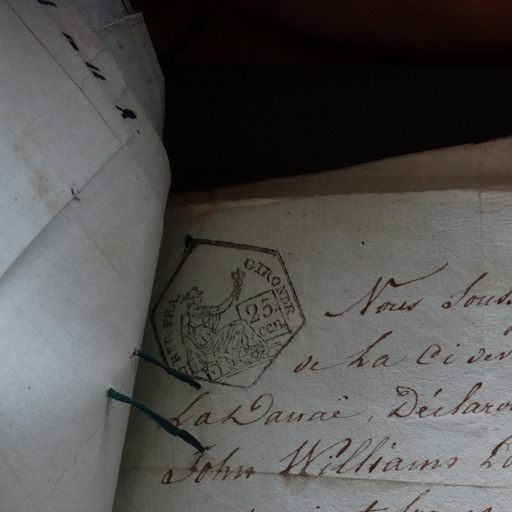 REP. FRA.
GIRONDE
25
cen
Nous Souss
de La Ci dev
La Danaë, Déclaron
John Williams